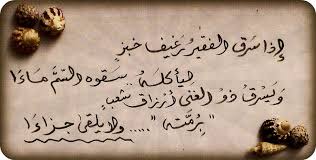 إذا سرق الفقير رغيف خبز
ليأكله سقوه السّمّ ماءا
ويسرق ذو الغنى أرزاق شعب
"برمّته" .... ولا يلقى جزاءا